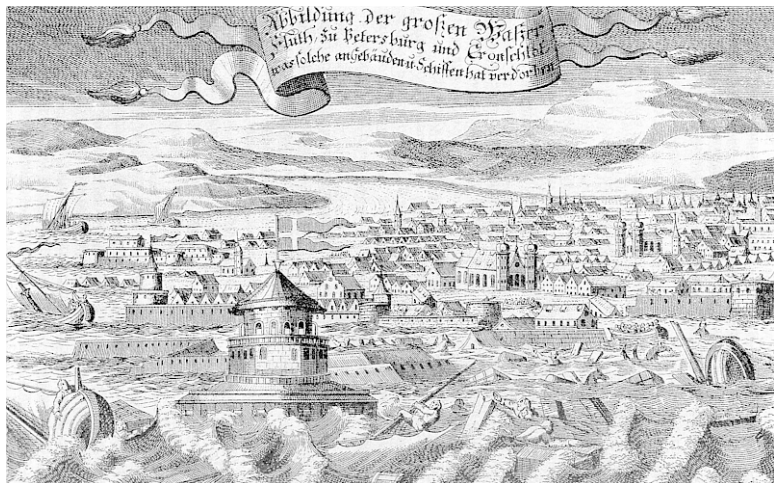 Abbildung der großen Waßer
Fluth zu Petersburg und Cronschlot
was solche an gebäuden u. Schiffen hat verdorben